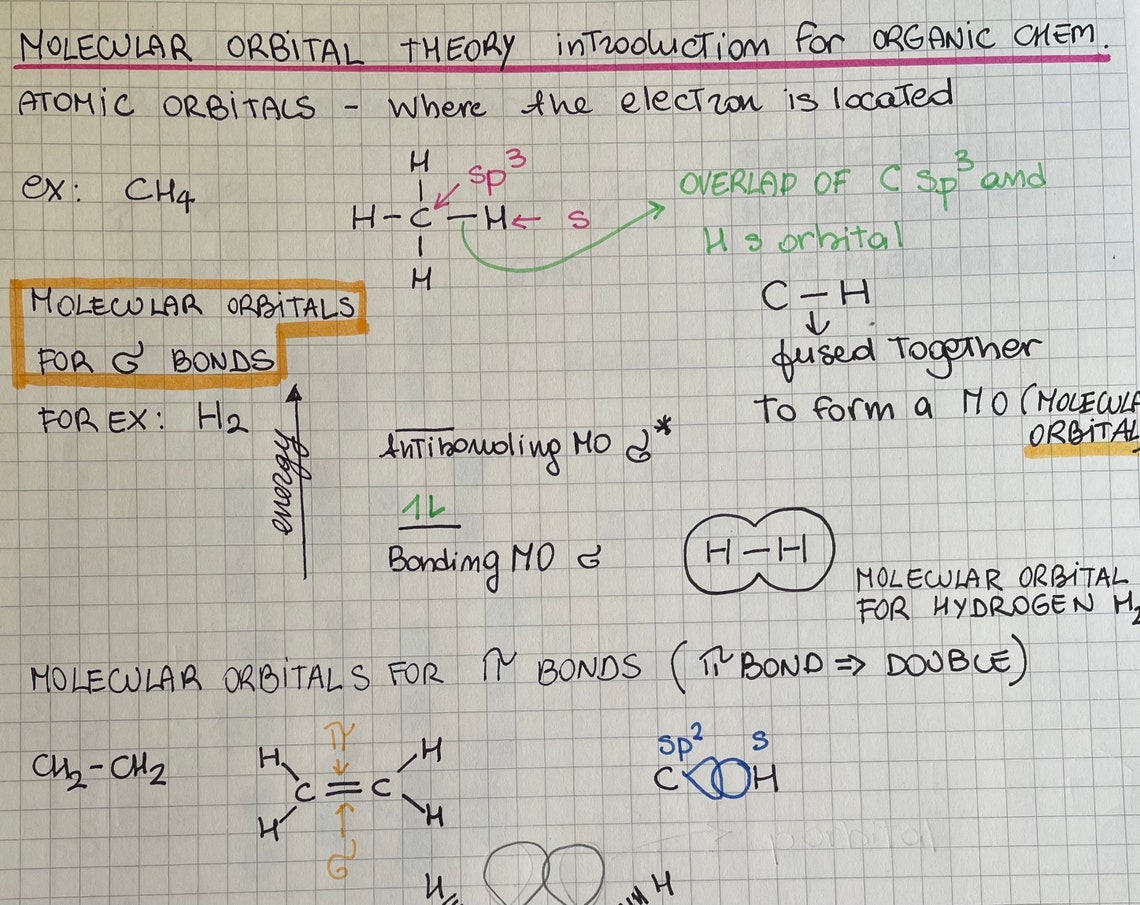 MOLECULAR ORBITAL THEORY introduction for ORGANIC CHEM.
ATOMIC ORBITALS - Where the electron is located
ex: CH4
H
sp3
H-C-H ← s
H
OVERLAP OF C sp3 and
H s orbital
C-H
↓
fused together
to form a MO (MOLECULA
ORBITAL
MOLECULAR ORBITALS
FOR σ BONDS
FOR EX: H2
energy
Antibonding MO σ*
1L
Bonding MO σ
H-H
MOLECULAR ORBITAL
FOR HYDROGEN H2
MOLECULAR ORBITALS FOR π BONDS (π BOND ⇒ DOUBLE)
CH2-CH2
π
H H
C=C
H H
σ
sp2 s
C H
H H